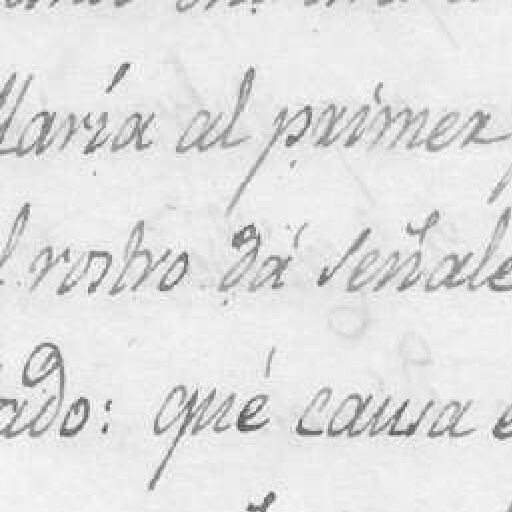 María al primer
l rostro dá señale
ado: qué causa e